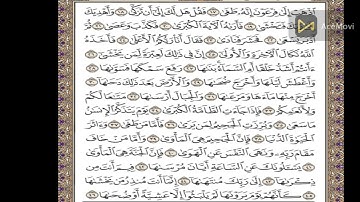 AceMovi
ٱذْهَبْ إِلَىٰ فِرْعَوْنَ إِنَّهُۥ طَغَىٰ ١٧ فَقُلْ هَل لَّكَ إِلَىٰٓ أَن تَزَكَّىٰ ١٨ وَأَهْدِيَكَ
إِلَىٰ رَبِّكَ فَتَخْشَىٰ ١٩ فَأَرَىٰهُ ٱلْـَٔايَةَ ٱلْكُبْرَىٰ ٢٠ فَكَذَّبَ وَعَصَىٰ ٢١ ثُمَّ
أَدْبَرَ يَسْعَىٰ ٢٢ فَحَشَرَ فَنَادَىٰ ٢٣ فَقَالَ أَنَا۠ رَبُّكُمُ ٱلْأَعْلَىٰ ٢٤ فَأَخَذَهُ
ٱللَّهُ نَكَالَ ٱلْـَٔاخِرَةِ وَٱلْأُولَىٰٓ ٢٥ إِنَّ فِى ذَٰلِكَ لَعِبْرَةً لِّمَن يَخْشَىٰٓ ٢٦
ءَأَنتُمْ أَشَدُّ خَلْقًا أَمِ ٱلسَّمَآءُ بَنَىٰهَا ٢٧ رَفَعَ سَمْكَهَا فَسَوَّىٰهَا ٢٨
وَأَغْطَشَ لَيْلَهَا وَأَخْرَجَ ضُحَىٰهَا ٢٩ وَٱلْأَرْضَ بَعْدَ ذَٰلِكَ دَحَىٰهَآ ٣٠
أَخْرَجَ مِنْهَا مَآءَهَا وَمَرْعَىٰهَا ٣١ وَٱلْجِبَالَ أَرْسَىٰهَا ٣٢ مَتَٰعًا لَّكُمْ
وَلِأَنْعَٰمِكُمْ ٣٣ فَإِذَا جَآءَتِ ٱلطَّآمَّةُ ٱلْكُبْرَىٰ ٣٤ يَوْمَ يَتَذَكَّرُ ٱلْإِنسَٰنُ
مَا سَعَىٰ ٣٥ وَبُرِّزَتِ ٱلْجَحِيمُ لِمَن يَرَىٰ ٣٦ فَأَمَّا مَن طَغَىٰ ٣٧ وَءَاثَرَ
ٱلْحَيَوٰةَ ٱلدُّنْيَا ٣٨ فَإِنَّ ٱلْجَحِيمَ هِىَ ٱلْمَأْوَىٰ ٣٩ وَأَمَّا مَنْ خَافَ
مَقَامَ رَبِّهِۦ وَنَهَى ٱلنَّفْسَ عَنِ ٱلْهَوَىٰ ٤٠ فَإِنَّ ٱلْجَنَّةَ هِىَ ٱلْمَأْوَىٰ
٤١ يَسْـَٔلُونَكَ عَنِ ٱلسَّاعَةِ أَيَّانَ مُرْسَىٰهَا ٤٢ فِيمَ أَنتَ مِن
ذِكْرَىٰهَآ ٤٣ إِلَىٰ رَبِّكَ مُنتَهَىٰهَآ ٤٤ إِنَّمَآ أَنتَ مُنذِرُ مَن يَخْشَىٰهَا
٤٥ كَأَنَّهُمْ يَوْمَ يَرَوْنَهَا لَمْ يَلْبَثُوٓا۟ إِلَّا عَشِيَّةً أَوْ ضُحَىٰهَا ٤٦